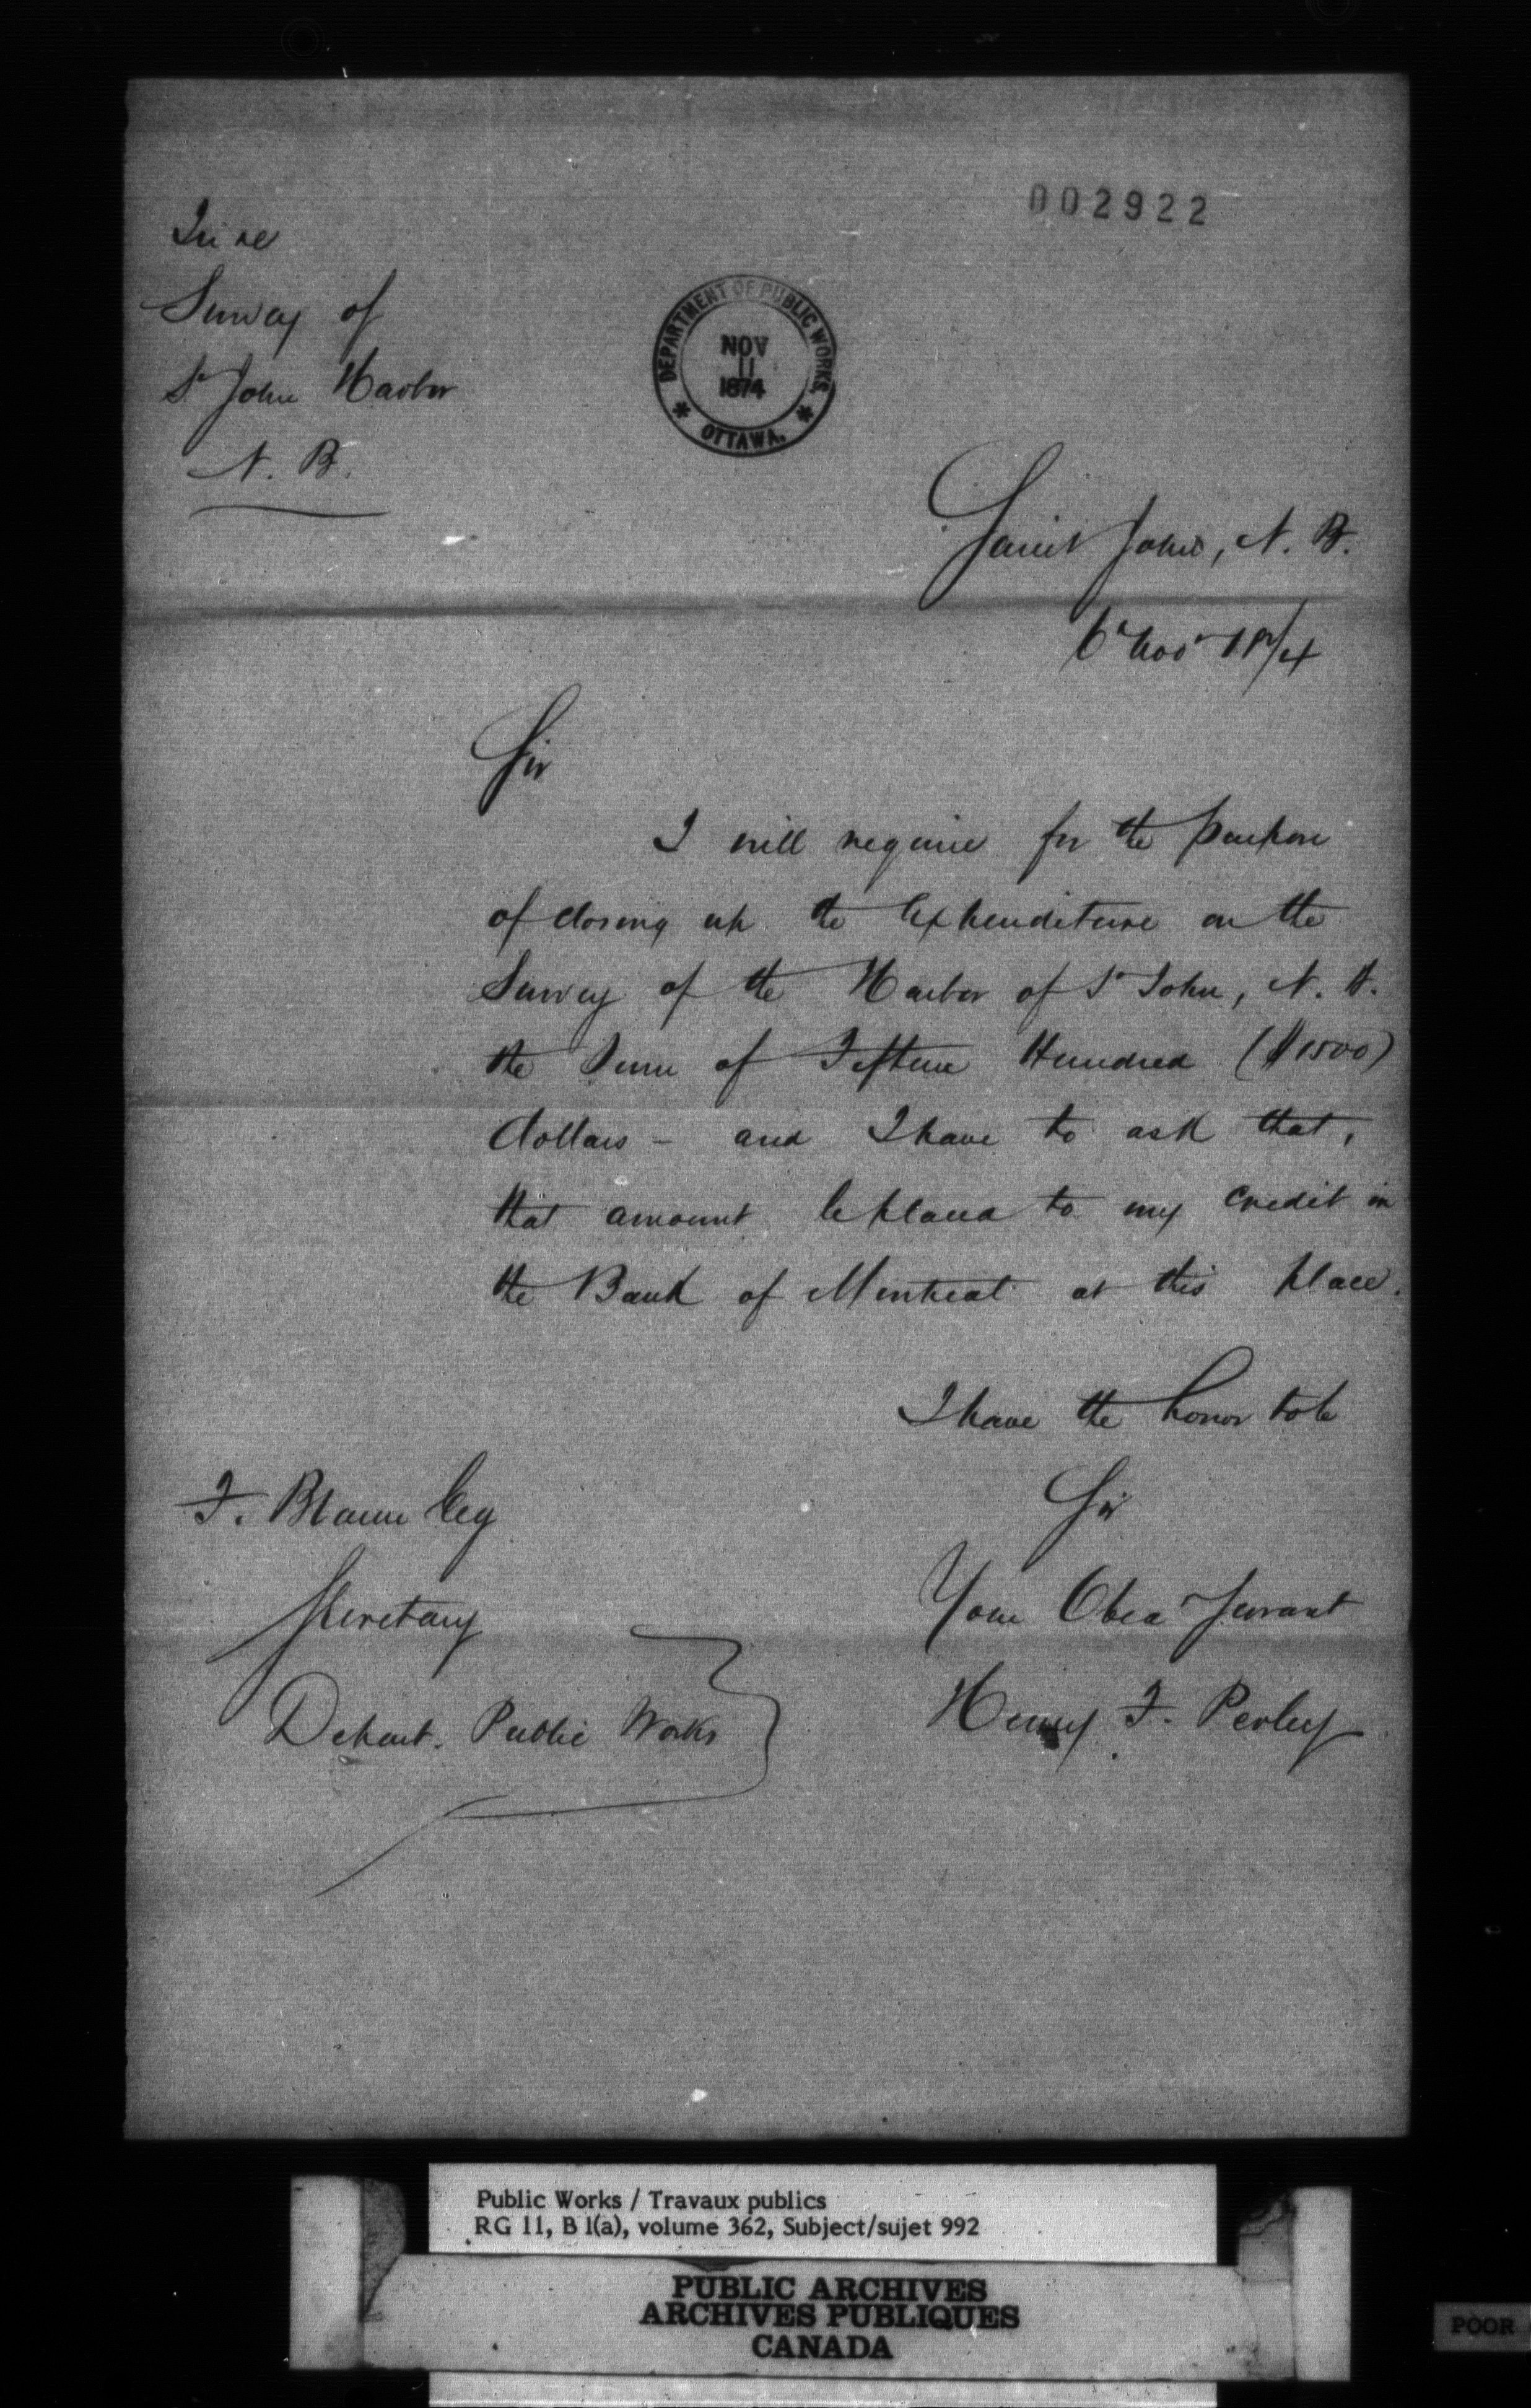 002922
In re
Survey of
St John Harbor
N. B.
DEPARTMENT OF PUBLIC WORKS.
NOV
11
1874
* OTTAWA. *
Saint John, N. B.
6 Nov 1874
Sir
I will require for the purpose
of closing up the Expenditure on the
Survey of the Harbor of St John, N. B.
the Sum of Fifteen Hundred ($1500)
dollars - and I have to ask that,
that amount be placed to my credit in
the Bank of Montreal at this place.
I have the honor to be
Sir
Your Obed Servant
Henry F. Perley
F. Braun Esq
Secretary
Depart. Public Works
Public Works / Travaux publics
RG 11, B 1(a), volume 362, Subject/sujet 992
PUBLIC ARCHIVES
ARCHIVES PUBLIQUES
CANADA
POOR